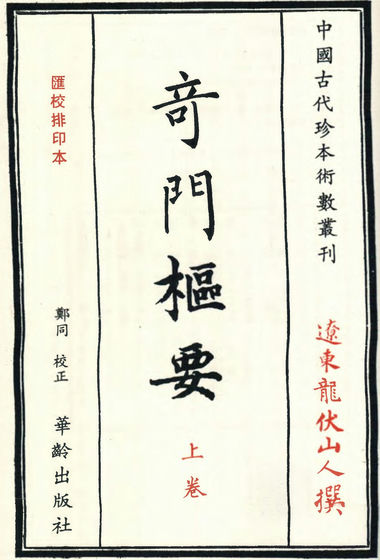 中國古代珍本術數叢刊
遼東龍伏山人撰
奇門樞要
上卷
匯校排印本
鄭同 校正
華齡出版社